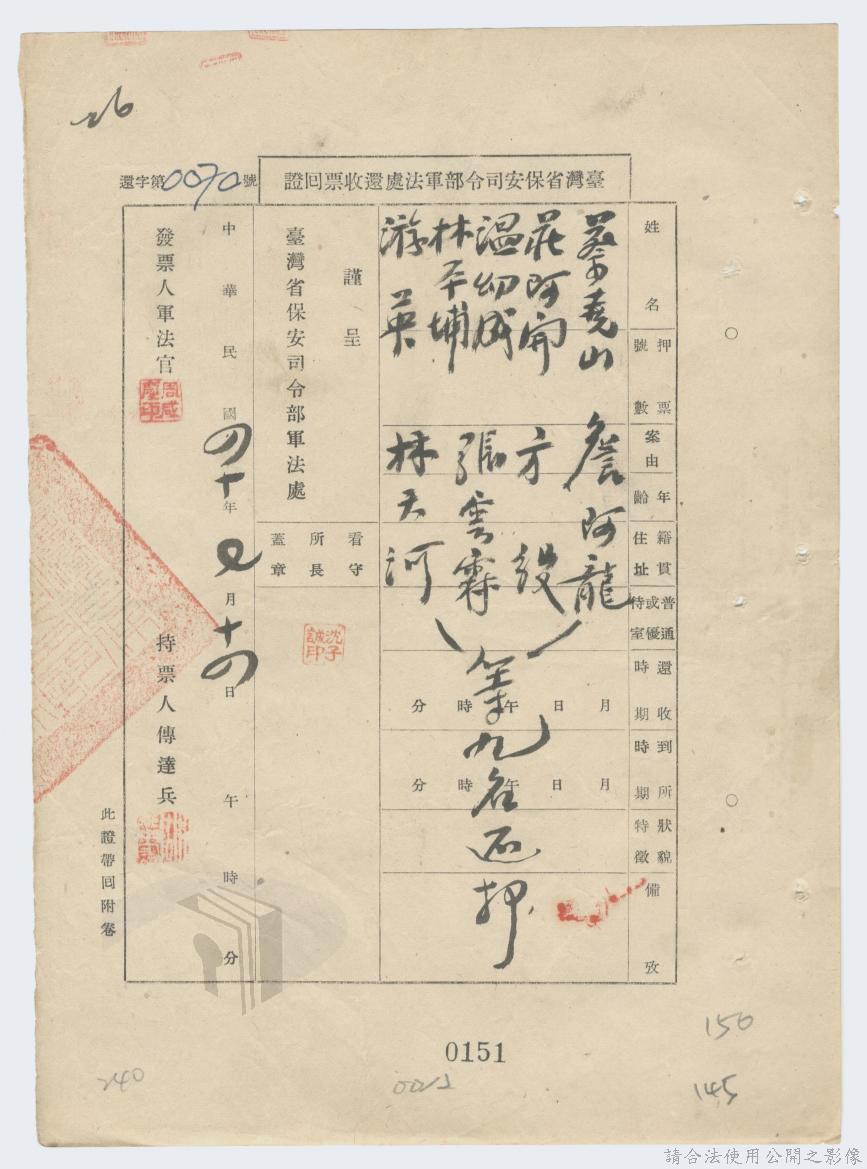 26
還字第0070號
臺灣省保安司令部軍法處還收票回證
姓名
押票號數
案由
年齡
籍貫住址
普通或優待室
還收時期
到所時期
狀貌特徵
備攷
蔡堯山 詹阿龍
莊阿開 方
溫幼成 張雲霖
林丕埔 林天河
游英
等九名還押
月 日 午 時 分
月 日 午 時 分
謹呈
臺灣省保安司令部軍法處
看守所長蓋章
沈子誠印
中華民國四十年 月十四日 午 時 分
發票人軍法官
周咸慶印
持票人傳達兵
此證帶回附卷
0151
150
145
240
請合法使用公開之影像